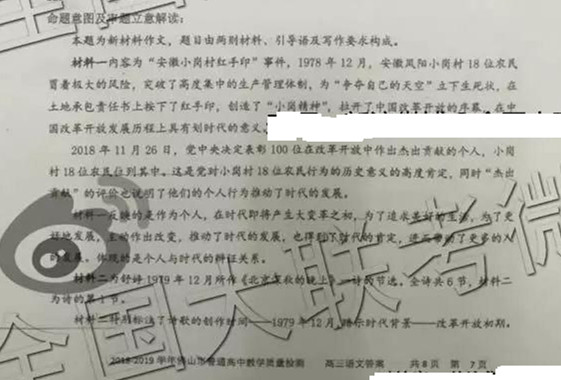 命题意图及审题立意解读：
本题为新材料作文，题目由两则材料、引导语及写作要求构成。
材料一内容为“安徽小岗村红手印”事件，1978 年 12 月，安徽凤阳小岗村 18 位农民
冒着极大的风险，突破了高度集中的生产管理体制，为“争夺自己的天空”立下生死状，在
土地承包责任书上按下了红手印，创造了“小岗精神”，拉开了中国改革开放的序幕，在中
国改革开放发展历程上具有划时代的意义。
2018 年 11 月 26 日，党中央决定表彰 100 位在改革开放中作出杰出贡献的个人，小岗
村 18 位农民位列其中。这是党对小岗村 18 位农民行为的历史意义的高度肯定，同时“杰出
贡献”的评价也说明了他们的个人行为推动了时代的发展。
材料一反映的是作为个人，在时代即将产生大变革之初，为了追求美好的生活，为了更
好地发展，主动作出改变，推动了时代的发展，也得到了时代的肯定，进而带动了更多的人
的发展。体现的是个人与时代的辩证关系。
材料二为舒婷 1979 年 12 月所作《北京深秋的晚上》一诗的节选。全诗共 6 节，材料二
为诗的第 1 节。
材料二特别标注了诗歌的创作时间——1979 年 12 月，暗示时代背景——改革开放初期。
2018-2019 学年佛山市普通高中教学质量检测 高三语文答案 共 8 页 第 7 页
全国大联考微